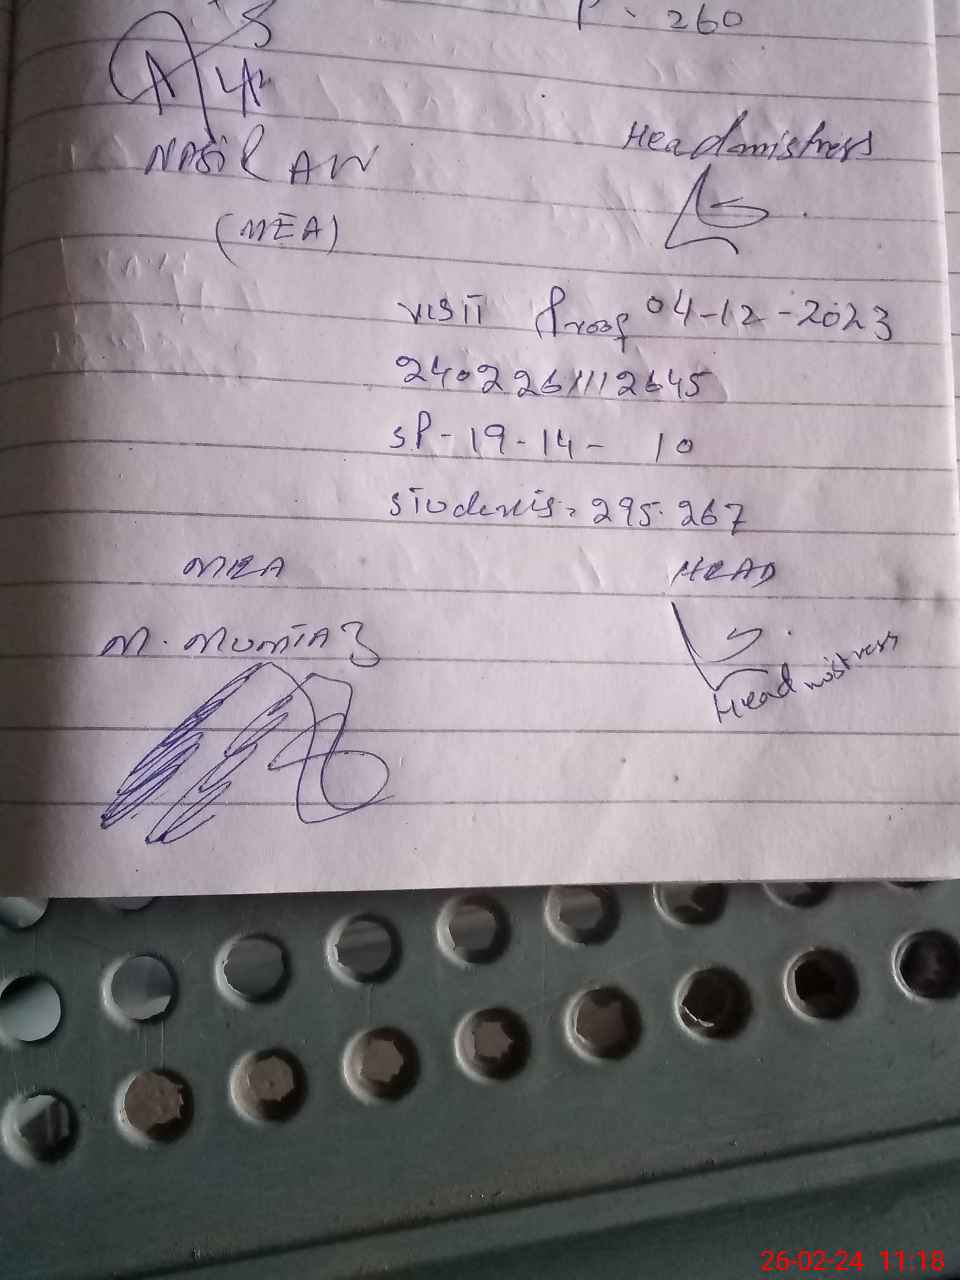 P. 260
NASIR AW
Headmistress
(MEA)
VISIT Proof 04-12-2023
2402261112645
SP-19-14- 10
Students: 295. 267
MEA
HEAD
M. MUMTAZ
Headmistress
26-02-24 11:18